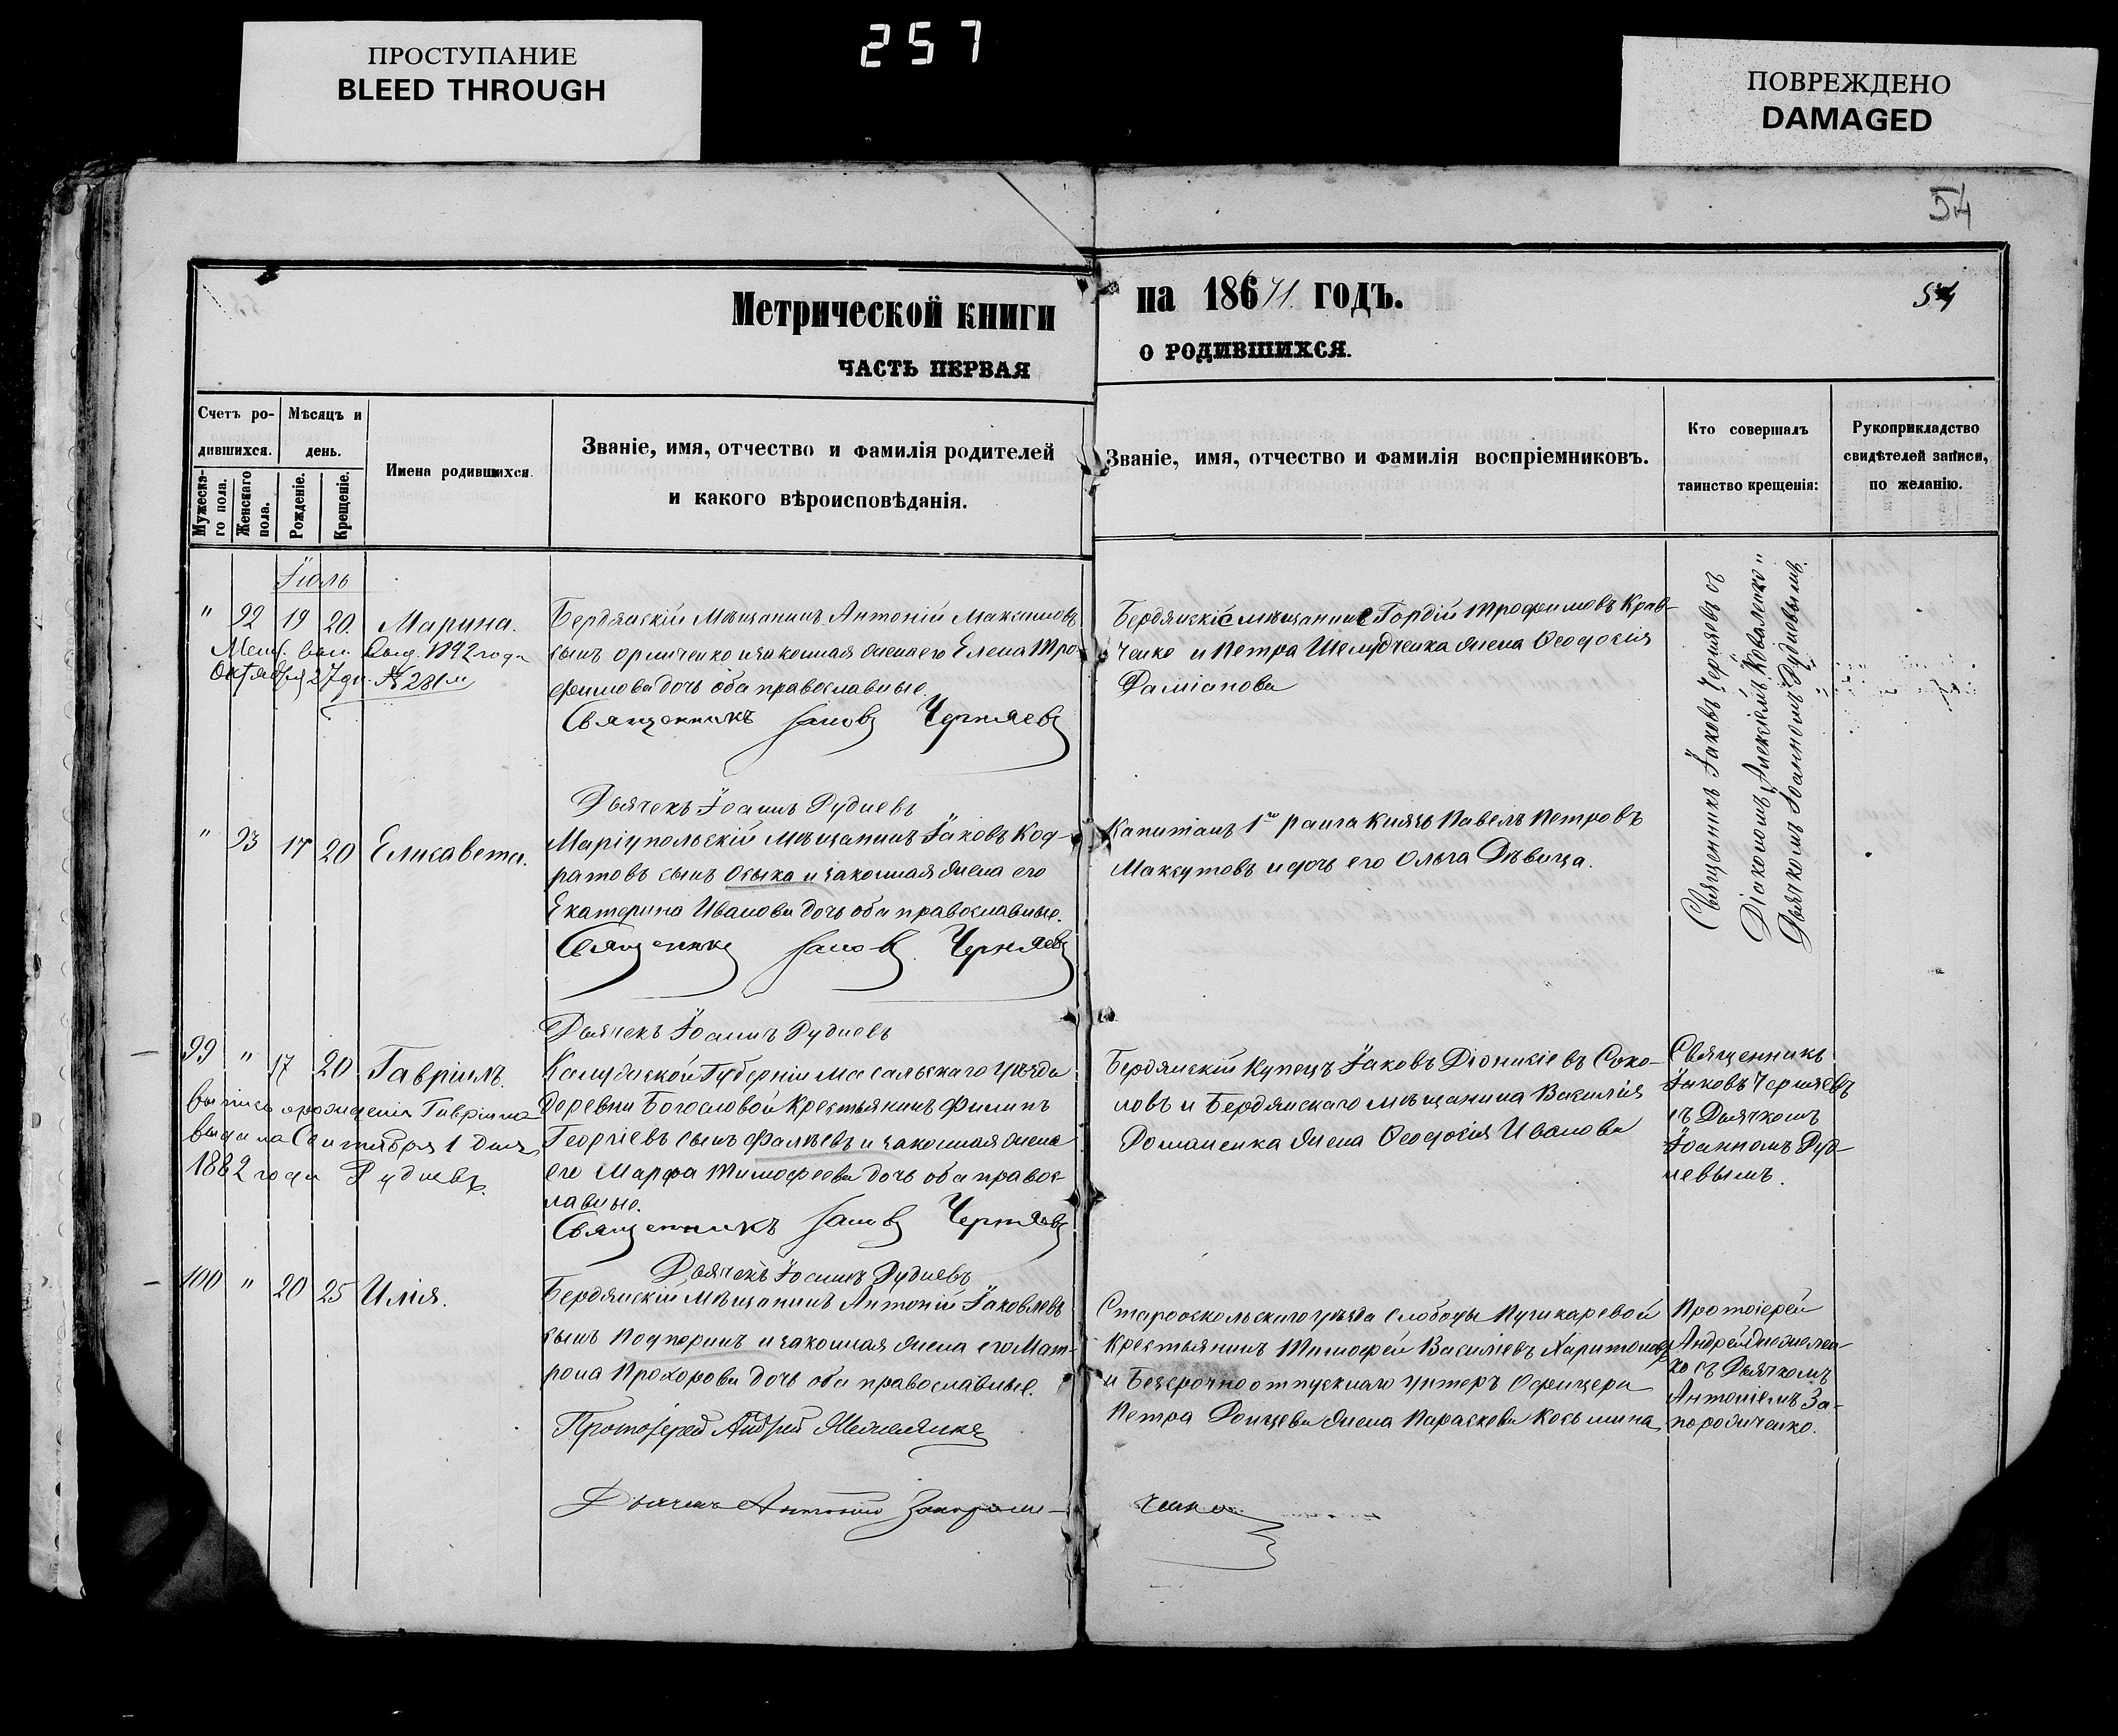 ПРОСТУПАНИЕ
BLEED THROUGH
257
ПОВРЕЖДЕНО
DAMAGED
54
Метрической книги
на 18671. годъ.
54
ЧАСТЬ ПЕРВАЯ
о РОДИВШИХСЯ.
Счетъ ро-
дившихся.
Мужеска-
го пола.
Женскаго
пола.
Мѣсяцъ и
день.
Рожденіе.
Крещеніе.
Имена родившихся.
Званіе, имя, отчество и фамилія родителей
и какого вѣроисповѣданія.
Званіе, имя, отчество и фамилія воспріемниковъ.
Кто совершалъ
таинство крещенія:
Рукоприкладство
свидѣтелей записи,
по желанію.
Іюль
" 92 19 20. Марина.
1892 года
Октября 27 дн. № 281
Бердянскій Мѣщанинъ Антоній Максимовъ
сынъ и законная жена его Елена Тро-
фимова дочь оба православные.
Священникъ Іаковъ Черняевъ
Дьячекъ Іоаннъ Рудневъ
Бердянскіе мѣщание Гордій Трофимовъ Крав-
ченко и Петра Шелудченка жена Ѳеодосія
Даміанова
Священникъ Іаковъ Черняевъ съ
Діакономъ Алексіемъ Коваленко"
Дьячкомъ Іоанномъ Рудневымъ.
" 93 17 20 Елисавета.
Маріупольскій Мѣщанинъ Іаковъ Код-
ратовъ сынъ Осыка и законная жена его
Екатерина Иванова дочь оба православные.
Священикъ Іаковъ Черняевъ
Дьячекъ Іоаннъ Рудневъ
Капитанъ 1го ранга Князь Павелъ Петровъ
Максутовъ и дочь его Ольга Дѣвица.
99 " 17 20 Гавріилъ.
рожденія Гавріила
выдана Сентября 1 дня
1882 года Рудневъ.
Калужской Губерніи Масальскаго уѣзда
деревни Богословой Крестьянинъ Филипъ
Георгіевъ сынъ Фалѣевъ и законная жена
его Марфа Тимофеева дочь оба правос-
лавные.
Священникъ Іаковъ Черняевъ
Дьячекъ Іоаннъ Рудневъ
Бердянскій Купецъ Іаковъ Діонисіевъ Соко-
ловъ и Бердянскаго мѣщанина Василія
Романенка жена Ѳеодосія Иванова
Священникъ
Іаковъ Черняевъ
съ Дьячкомъ
Іоанномъ Руд-
невымъ.
100 " 20 25 Илія.
Бердянскій Мѣщанинъ Антоній Іаковлевъ
сынъ Подпоринъ и законная жена его Мат-
рона Прохорова дочь оба православные.
Протоіерей Андрей
Дьячекъ Антоній Запорожи-
ченко
Старооскольскаго уѣзда Слободы Пушкаревой
Крестьянинъ Тимофей Василіевъ Харитоновъ
и Безсрочноотпускнаго унтеръ Офицера
Петра Донцева жена Параскева Косьмина
Протоіерей
Андрей
ко съ Дьячкомъ
Антоніемъ За-
порожченко.